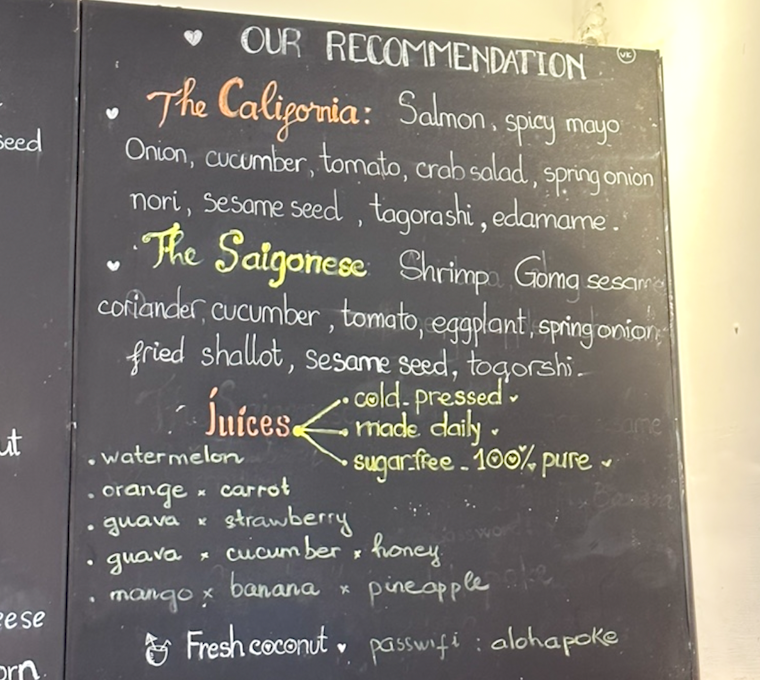 OUR RECOMMENDATION
The Caligornia: Salmon, spicy mayo
Onion, cucumber, tomato, crab salad, spring onion
nori, sesame seed, tagorashi, edamame.
The Saigonese Shrimp Gomg sesame
coriander, cucumber, tomato, eggplant, spring onion,
fried shallot, sesame seed, togorshi.
Juices
. cold-pressed
. made daily
. sugar-free - 100% pure
. watermelon
. orange x carrot
. guava x strawberry
. guava x cucumber x honey
. mango x banana x pineapple
Fresh coconut
passwifi : alohapoke
seed
ut
eese
orn